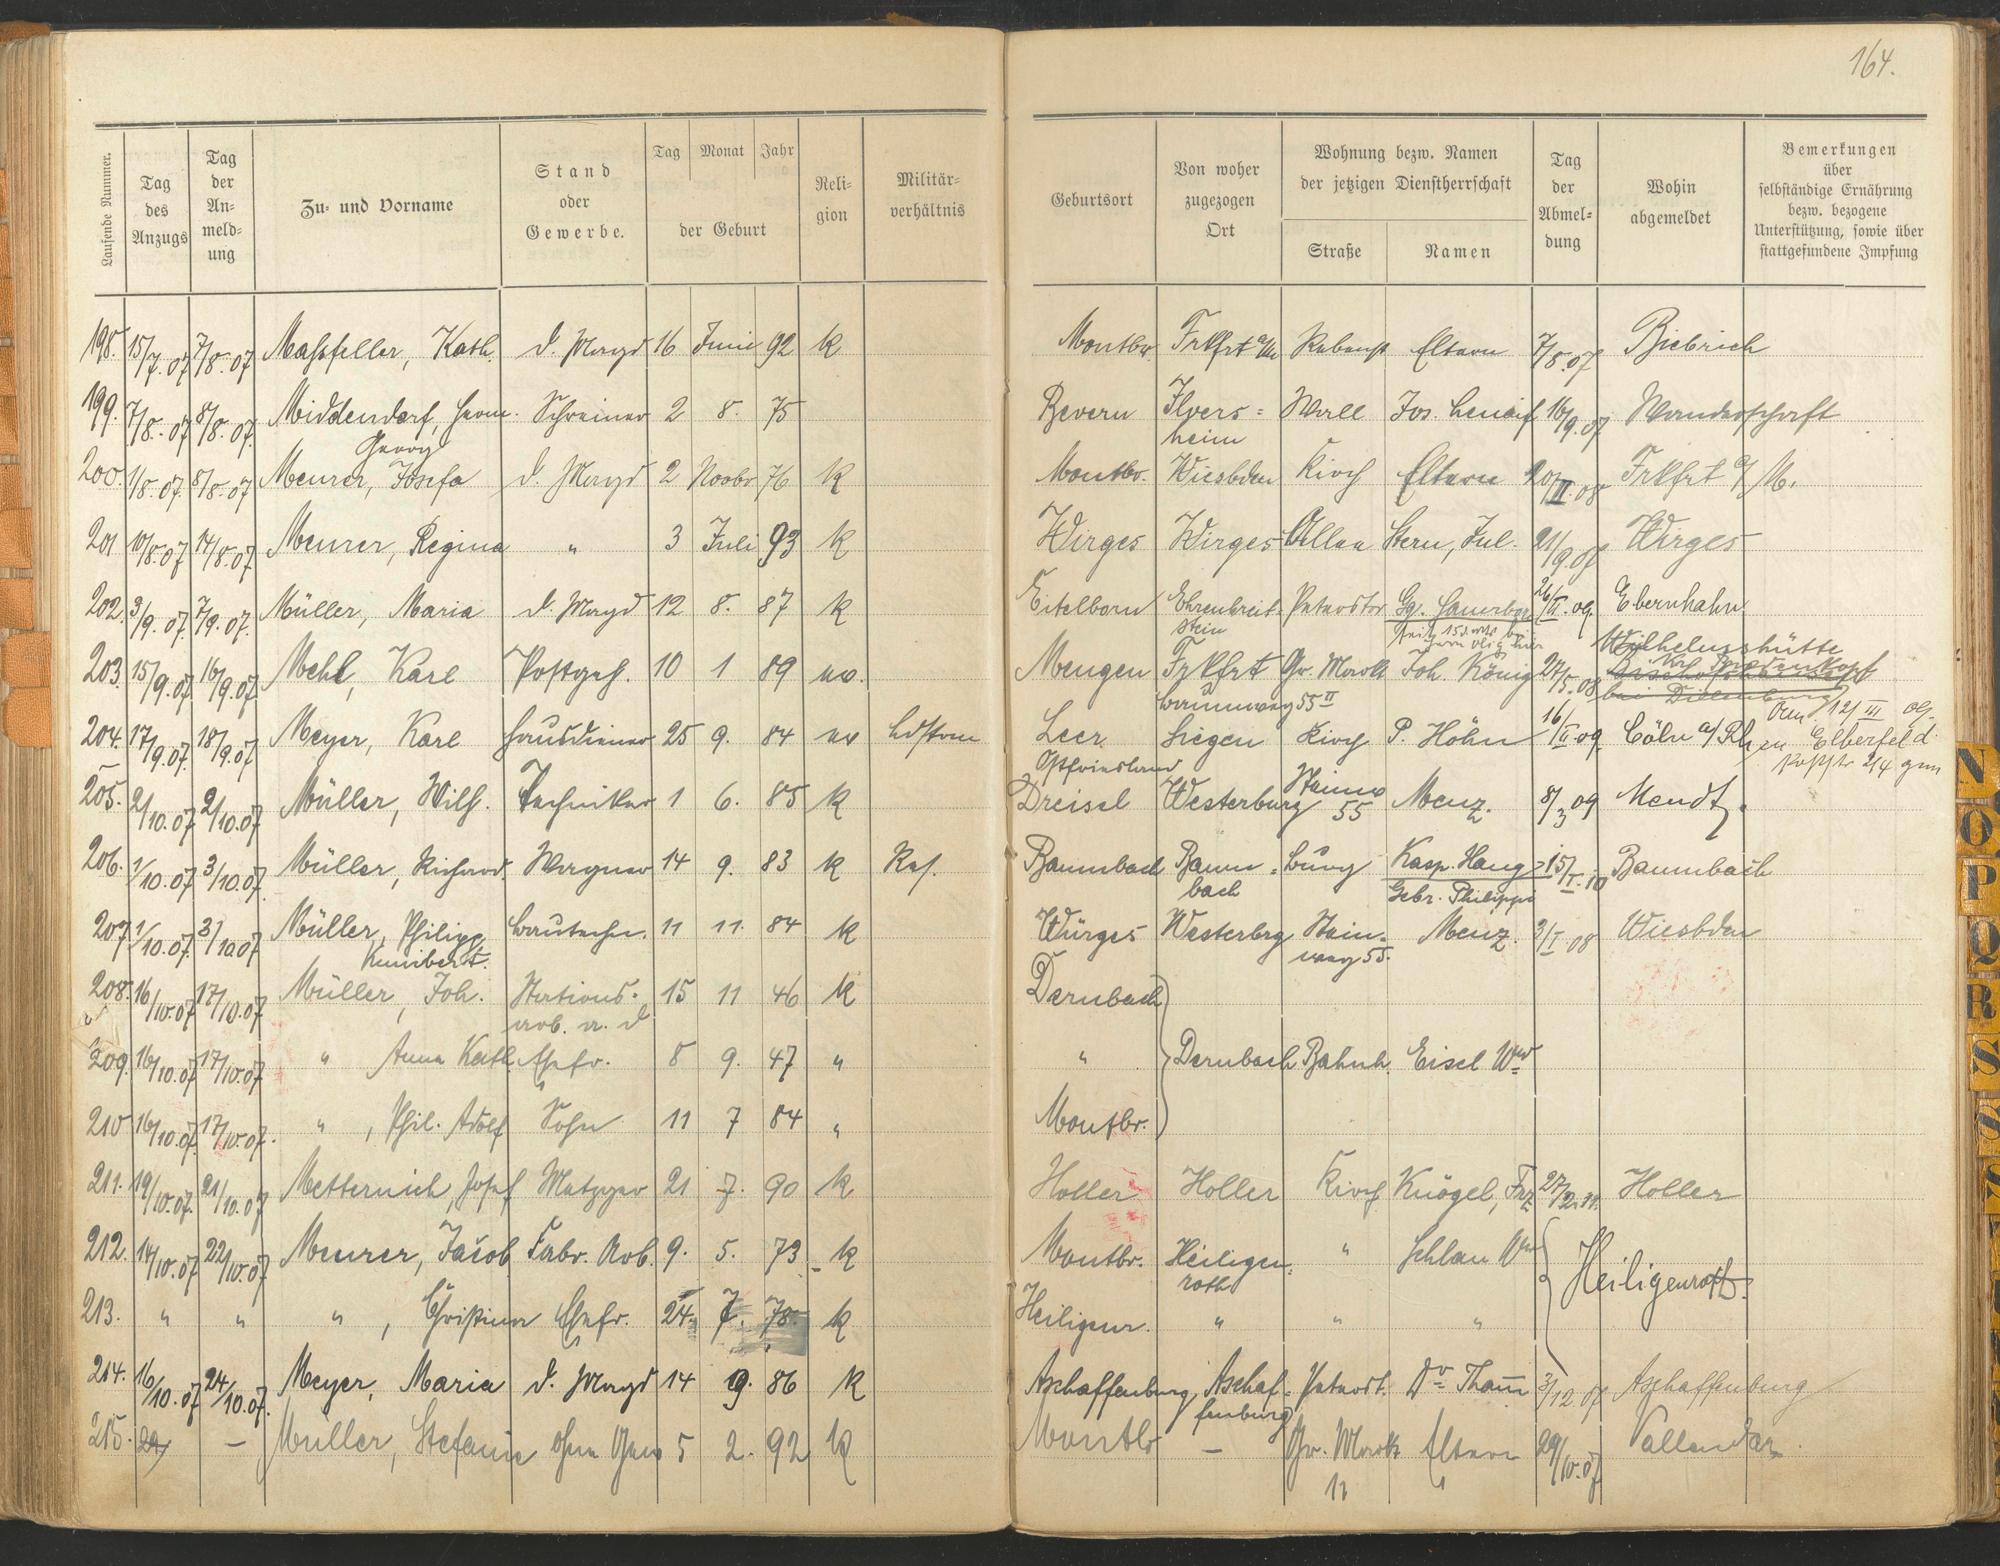 164.
Laufende Nummer.
Tag des Anzugs
Tag der An- meld- ung
Zu- und Vorname
Stand oder Gewerbe.
Tag Monat Jahr
der Geburt
Reli- gion
Militär- verhältnis
Geburtsort
Von woher zugezogen Ort
Wohnung bezw. Namen der jetzigen Dienstherrschaft
Straße Namen
Tag der Abmel- dung
Wohin abgemeldet
Bemerkungen über selbständige Ernährung bezw. bezogene Unterstützung, sowie über stattgefundene Impfung
198. 15/7.07 7/8.07 Maßfeller, Kath. d. Magd 16 Juni 92 k Montbr Frkfrt a/M Eltern 7/8.07 Biebrich
199. 7/8.07 8/8.07 Middendorf, Herm. Georg Schreiner 2 8. 75 Bevern Ilvers= heim Wall 16/9.07 Wanderschaft
200. 1/8.07 8/8.07 Meurer, Josefa d. Magd 2 Novbr 76 k Montbr. Wiesbden Kirch Eltern 20/II.08 Frkfrt a/M.
201 10/8.07 14/8.07 Meurer, Regina " 3 Juli 93 k Wirges Wirges Allee Stern, Jul. 21/9.08 Wirges
202. 3/9.07. 7/9.07. Müller, Maria d. Magd 12 8. 87 k Eitelborn Ehrenbreit- stein Peterstor 26/II.09. Ebernhahn
203. 15/9.07 16/9.07 Mehl, Karl Postgeh. 10 1 89 ev. Mengen Frkfrt Gr. Markt Joh. König 27/5.08 Wilhelmshütte
204. 17/9.07. 18/9.07 Meyer, Karl Hausdiener 25 9. 84 ev Ldstrm Leer Ostfriesland Siegen Kirch P. Höhn 16/II.09 Cöln a/Rh
12/III 09. zu Elberfeld
205. 2/10.07 2/10.07 Müller, Wilh. Techniker 1 6. 85 k Dreisel Westerburg Steinw 55 Menz. 8/3 09 Mendt.
206. 1/10.07 3/10.07. Müller, Richard. Wagner 14 9. 83 k Res. Baumbach Baum= bach Burg Kasp. Haug Gebr. Philippi 15/I.10 Baumbach
207. 1/10.07. 3/10.07 Müller, Philipp Kunibert. Bautechn. 11 11. 84 k Würges Westerbrg Stein- weg 55. Menz. 3/I 08 Wiesbden
208. 16/10.07 17/10.07 Müller, Joh. Stations- arb. a. d 15 11 46 k Dernbach
209. 16/10.07 17/10.07 " Anna Kath. Ehefr. 8 9. 47 " " Dernbach Bahnh. Eisel Ww
210 16/10.07 17/10.07. ", Phil. Adolf Sohn 11 7 84 " Montbr.
211. 19/10.07. 21/10.07 Metternich, Josef Metzger 21 7. 90 k Holler Holler Kirch Knögel, Frz 27/2.11. Holler
212. 14/10.07 22/10.07 Meurer, Jacob Fabr. Arb. 9. 5. 73 k Montbr. Heiligen= roth " Schlau Ww Heiligenroth.
213. " " ", Christina Ehefr. 24. 7. 78. k Heiligenr. " " "
214. 16/10.07 24/10.07. Meyer, Maria d. Magd 14 9. 86 k Aschaffenburg Aschaf= fenburg Peterst. Dr. Thamm 3/12 07 Aschaffenburg
215. 29/ — Müller, Stefanie ohne Gew 5 2. 92 k Montbr — Gr. Markt 11 Eltern 29/10.07 Vallendar.
N
O
P
Q
R
S
S